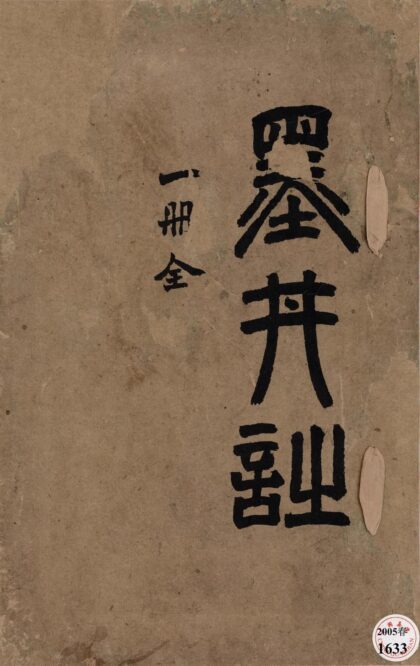 墨井詩
一册全
2005春
1633